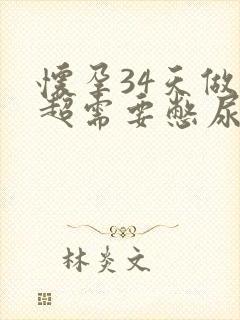 怀孕34天做
超需要憋尿
林炎文